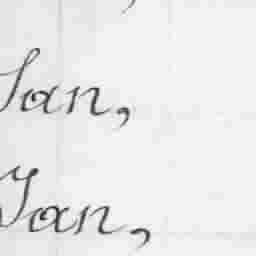 San,
Jan,